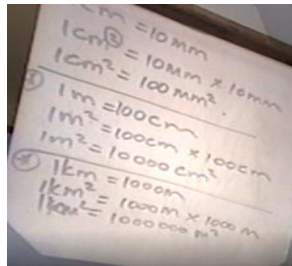 cm = 10mm
1cm² = 10mm × 10mm
1cm² = 100mm².
1m = 100cm
1m² = 100cm × 100cm
1m² = 10000cm²
1km = 1000m
1km² = 1000m × 1000m
1km² = 1000000 m²